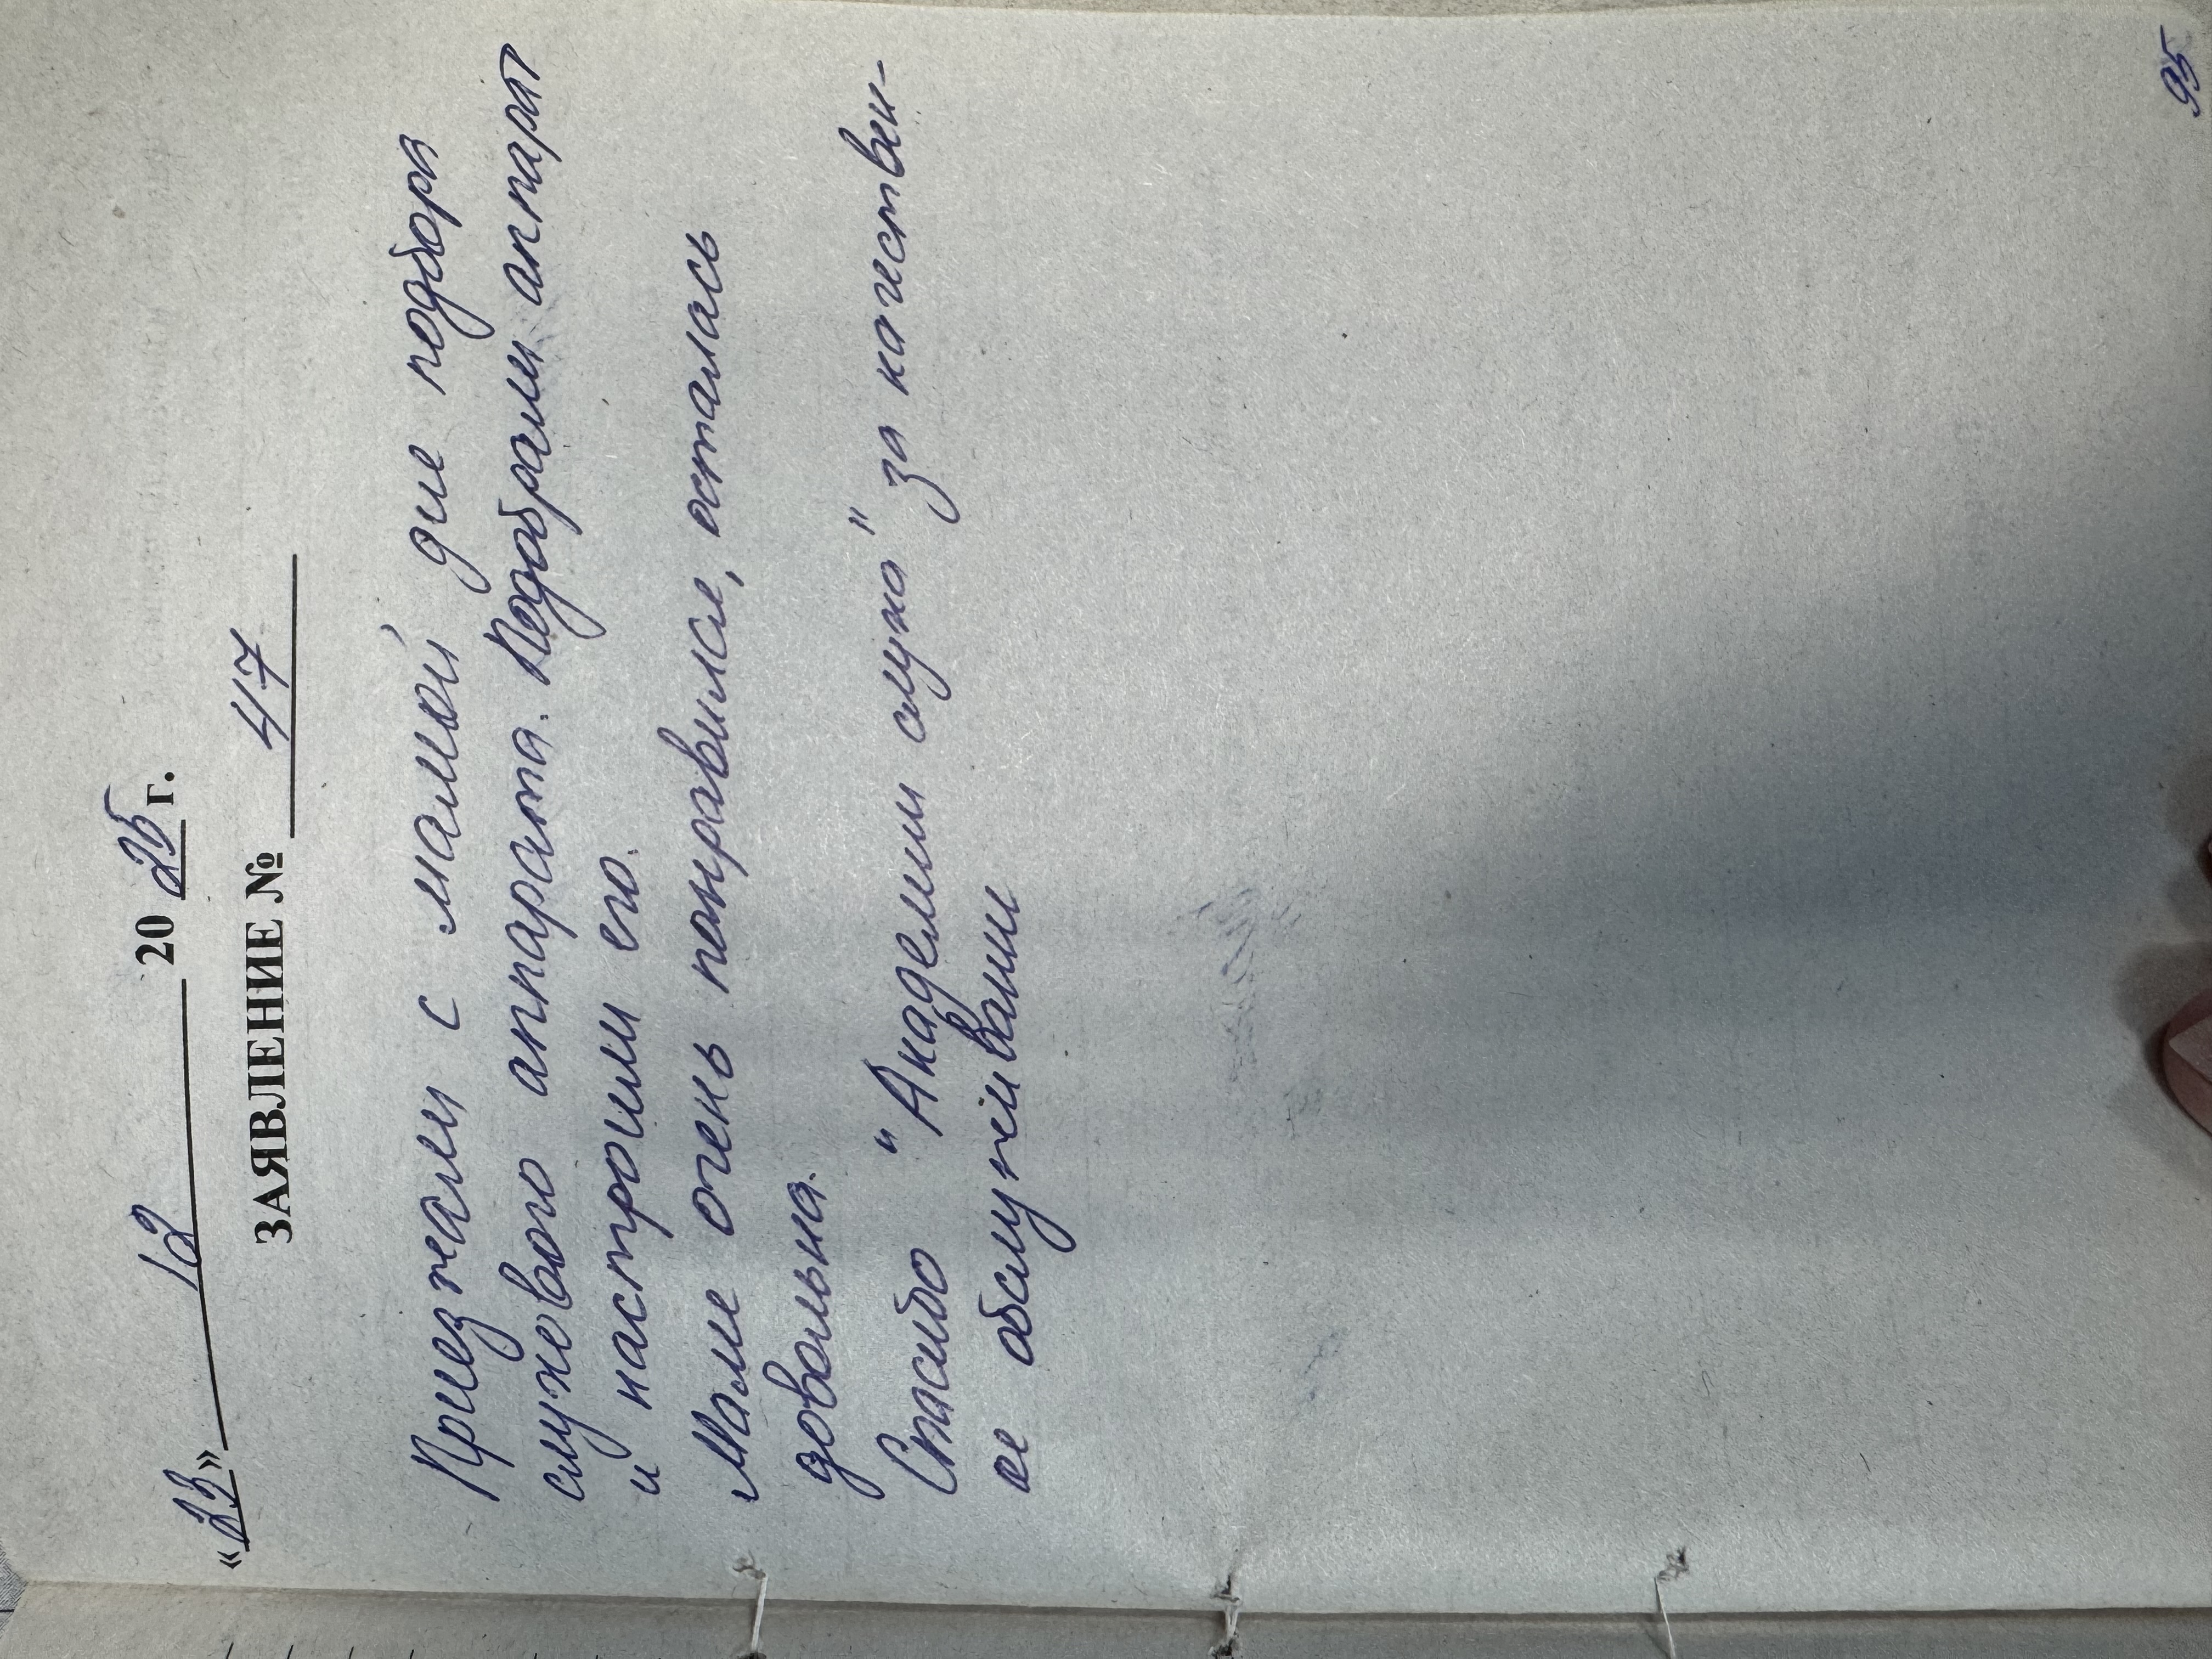 «23» 12 2025 г.
ЗАЯВЛЕНИЕ № 47
Приезжали с мамой для подбора
слухового аппарата. Подобрали аппарат
и настроили его.
Маме очень понравился, осталась
довольна.
Спасибо "Академии слуха" за качествен-
ое обслуживании
95